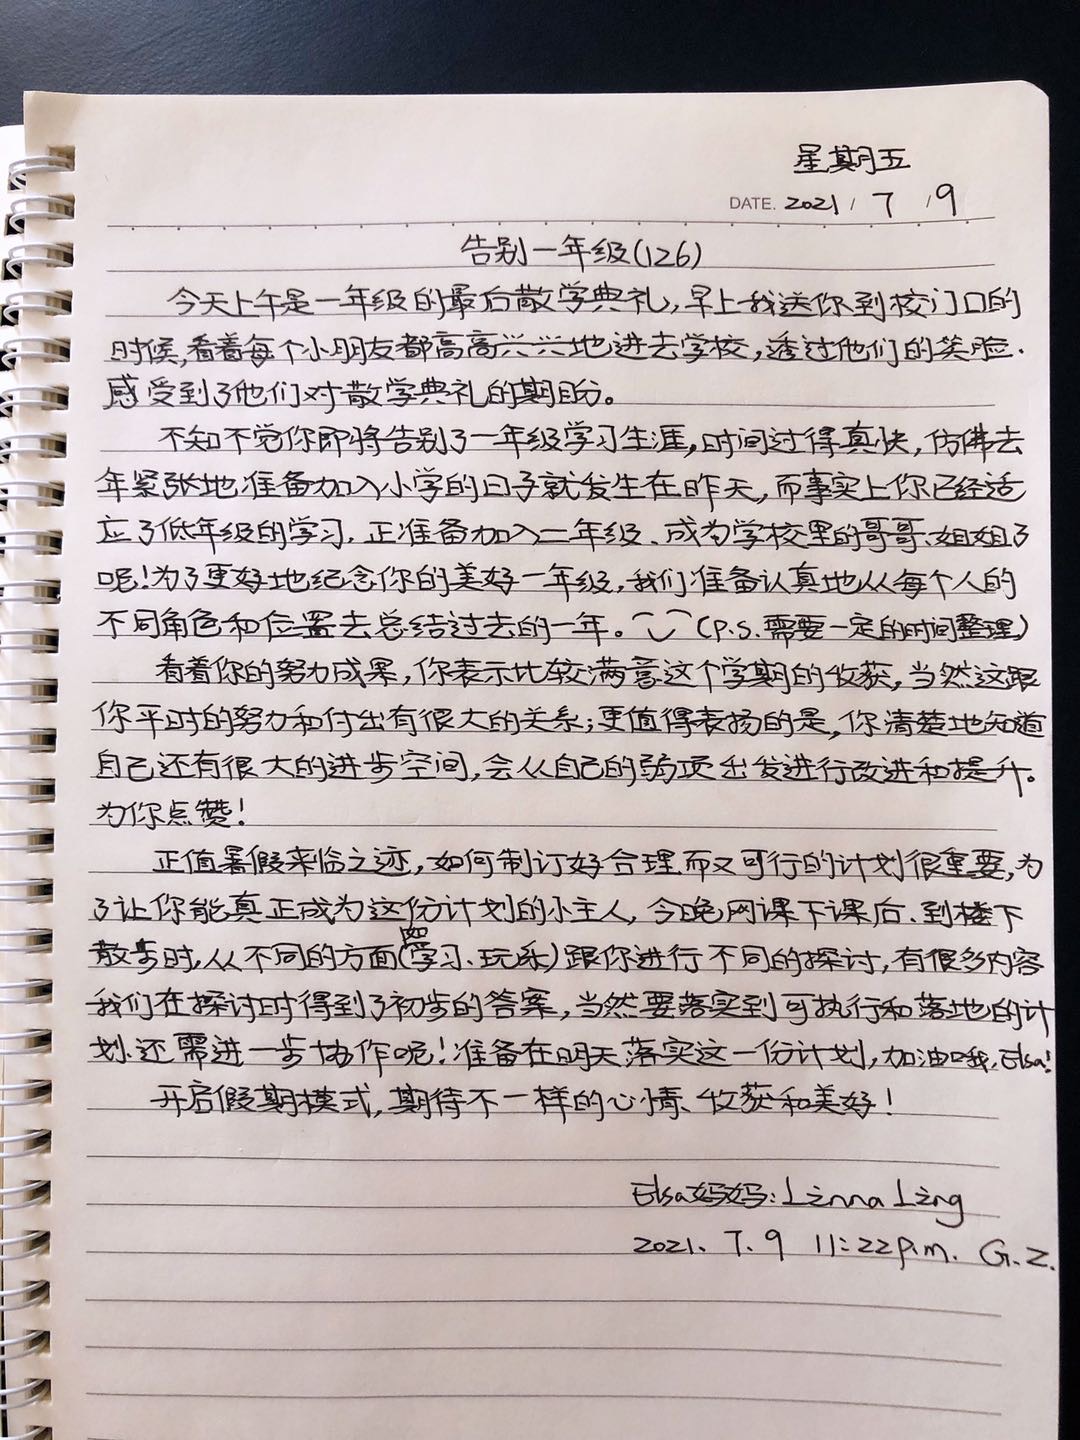 星期五
DATE. 2021 / 7 / 9
告别一年级(126)
今天上午是一年级的最后散学典礼,早上我送你到校门口的
时候,看着每个小朋友都高高兴兴地进去学校,透过他们的笑脸.
感受到了他们对散学典礼的期盼。
不知不觉你即将告别了一年级学习生涯,时间过得真快,仿佛去
年紧张地准备加入小学的日子就发生在昨天,而事实上你已经适
应了低年级的学习.正准备加入二年级、成为学校里的哥哥、姐姐了
呢!为了更好地纪念你的美好一年级,我们准备认真地从每个人的
不同角色和位置去总结过去的一年。(P.S.需要一定的时间整理)
看着你的努力成果,你表示比较满意这个学期的收获,当然这跟
你平时的努力和付出有很大的关系;更值得表扬的是,你清楚地知道
自己还有很大的进步空间,会从自己的弱项出发进行改进和提升。
为你点赞!
正值暑假来临之迹,如何制订好合理而又可行的计划很重要,为
了让你能真正成为这份计划的小主人,今晚网课下课后、到楼下
散步时,从不同的方面(如学习、玩乐)跟你进行不同的探讨,有很多内容
我们在探讨时得到了初步的答案,当然要落实到可执行和落地的计
划.还需进一步协作呢!准备在明天落实这一份计划,加油哦,Elsa!
开启假期模式,期待不一样的心情、收获和美好!
Elsa妈妈:Linna Ling
2021. 7. 9 11:22p.m. G.Z.